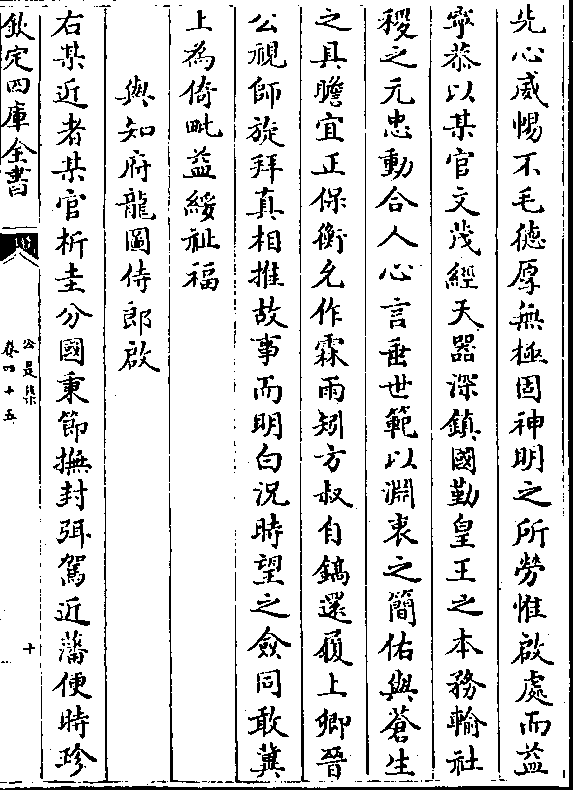 先心威惕不毛德厚無極固神明之所勞惟啟處而益
寧恭以某官文茂經天器深鎮國勤皇王之本務輸社
稷之元忠動合人心言垂世範以淵衷之簡佑與蒼生
之具瞻宜正保衡允作霖雨矧方叔自鎬還履上卿晉
公視師旋拜真相推故事而明白況時望之僉同敢冀
上為倚毗益綏祉福
與知府龍圖侍郎啟
右某近者某官析圭分國秉節撫封弭駕近藩便時珍
欽定四庫全書
公是集
卷四十五
十